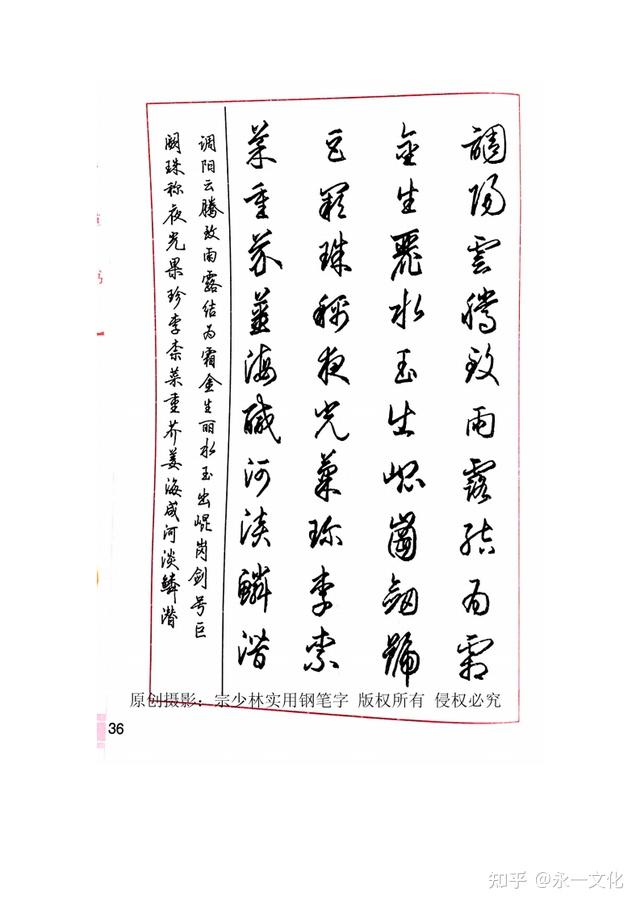 調陽雲騰致雨露結為霜
金生麗水玉出崐崗劍號
巨闕珠稱夜光菓珍李柰
菜重芥薑海鹹河淡鱗潛
调阳云腾致雨露结为霜金生丽水玉出崐岗剑号巨
阙珠称夜光果珍李柰菜重芥姜海咸河淡鳞潜
原创摄影：宗少林实用钢笔字 版权所有 侵权必究
36
知乎 @永一文化